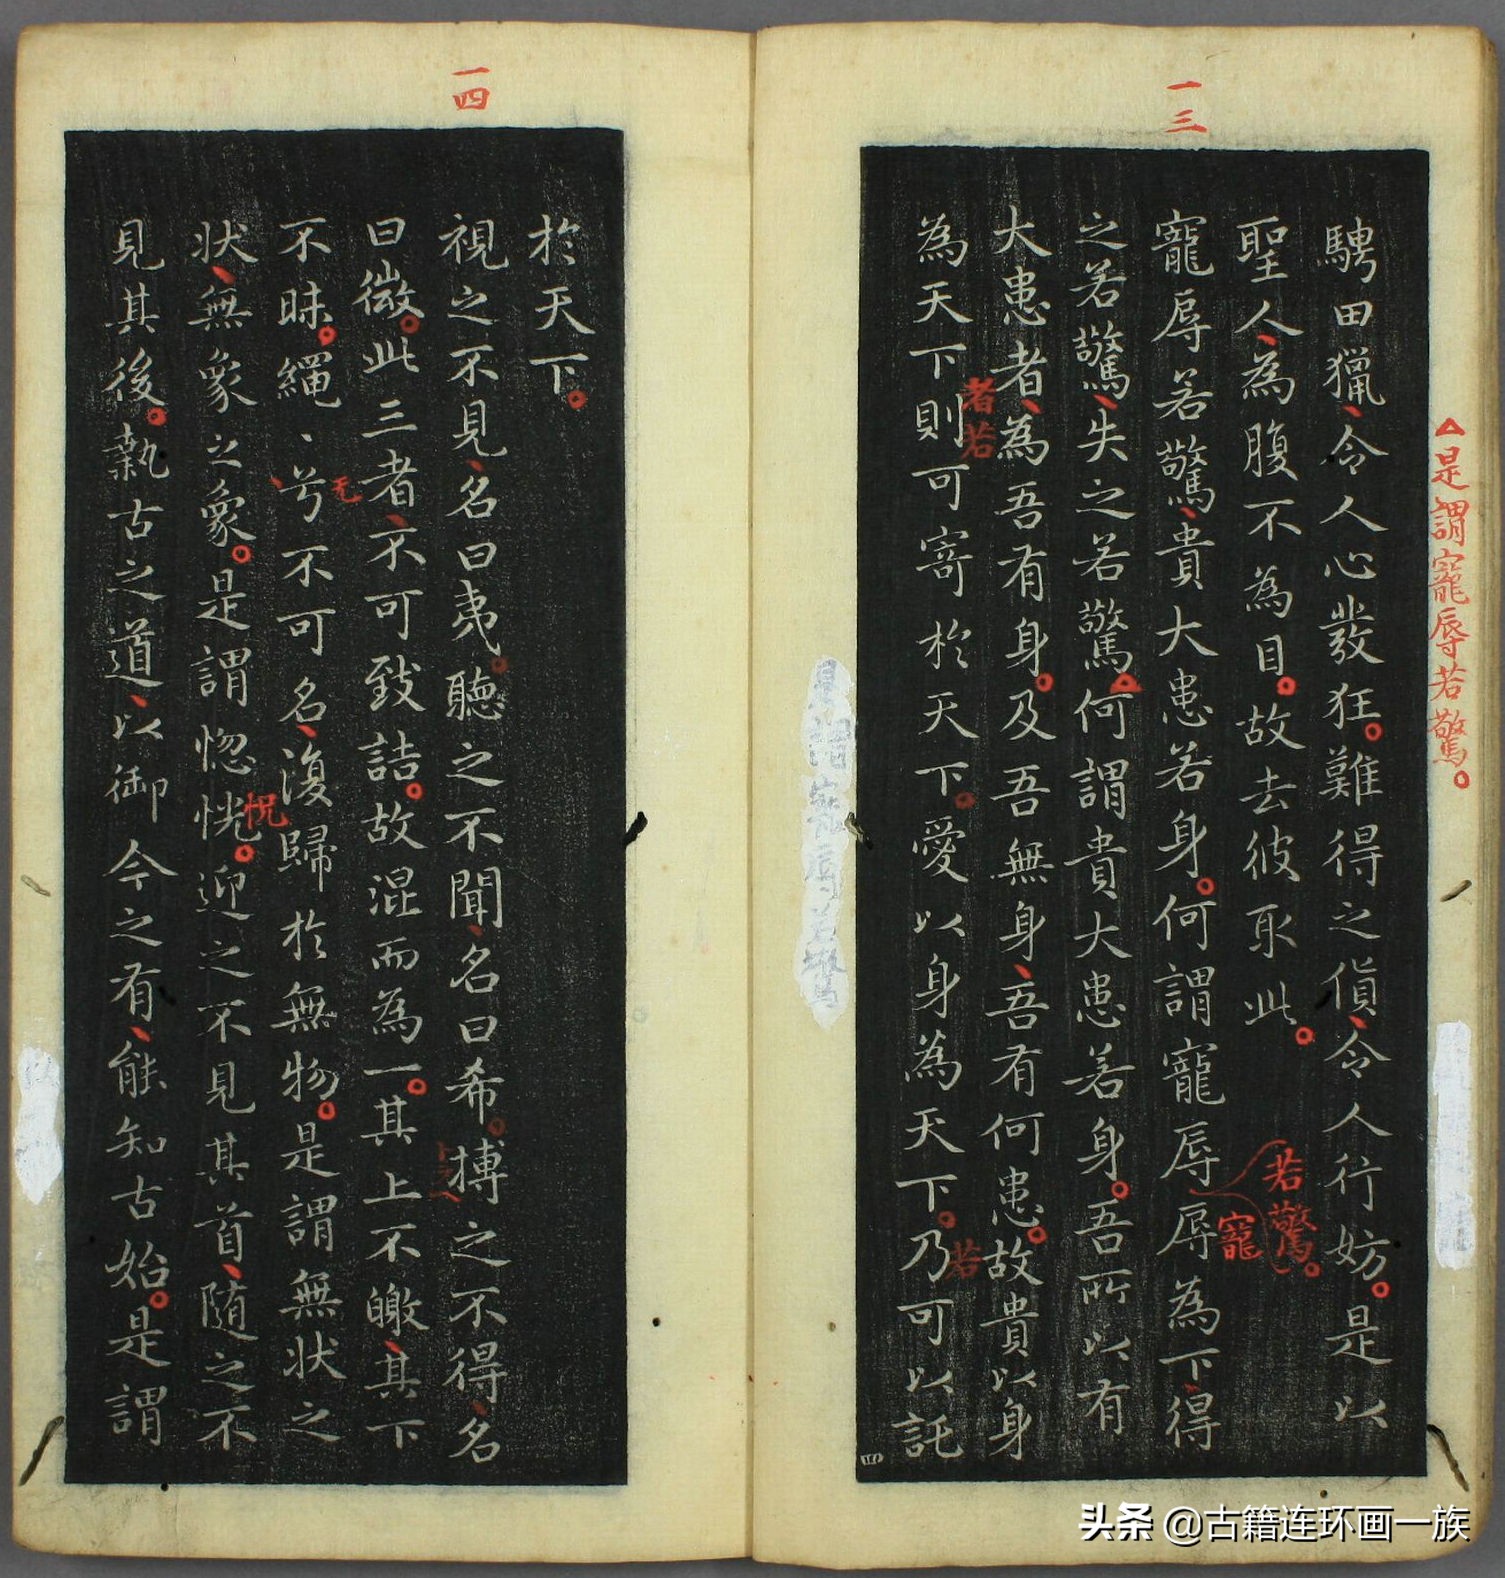 一三
騁田獵、令人心發狂。難得之貨、令人行妨。是以
聖人、為腹不為目。故去彼取此。
寵辱若驚、貴大患若身。何謂寵辱辱為下、得
若驚。
寵
之若驚、失之若驚△何謂貴大患若身。吾所以有
△是謂寵辱若驚。
大患者、為吾有身。及吾無身、吾有何患。故貴以身
為天下則可寄於天下。愛以身為天下。乃可以託
者若
若
四
一四
於天下。
視之不見、名曰夷。聽之不聞、名曰希。摶之不得、名
曰微。此三者、不可致詰。故混而為一。其上不皦、其下
不昧。繩、兮不可名、復歸於無物。是謂無状之
无
状、無象之象。是謂惚恍。迎之不見其首、随之不
怳
見其後。執古之道、以御今之有、能知古始。是謂
头条 @古籍连环画一族